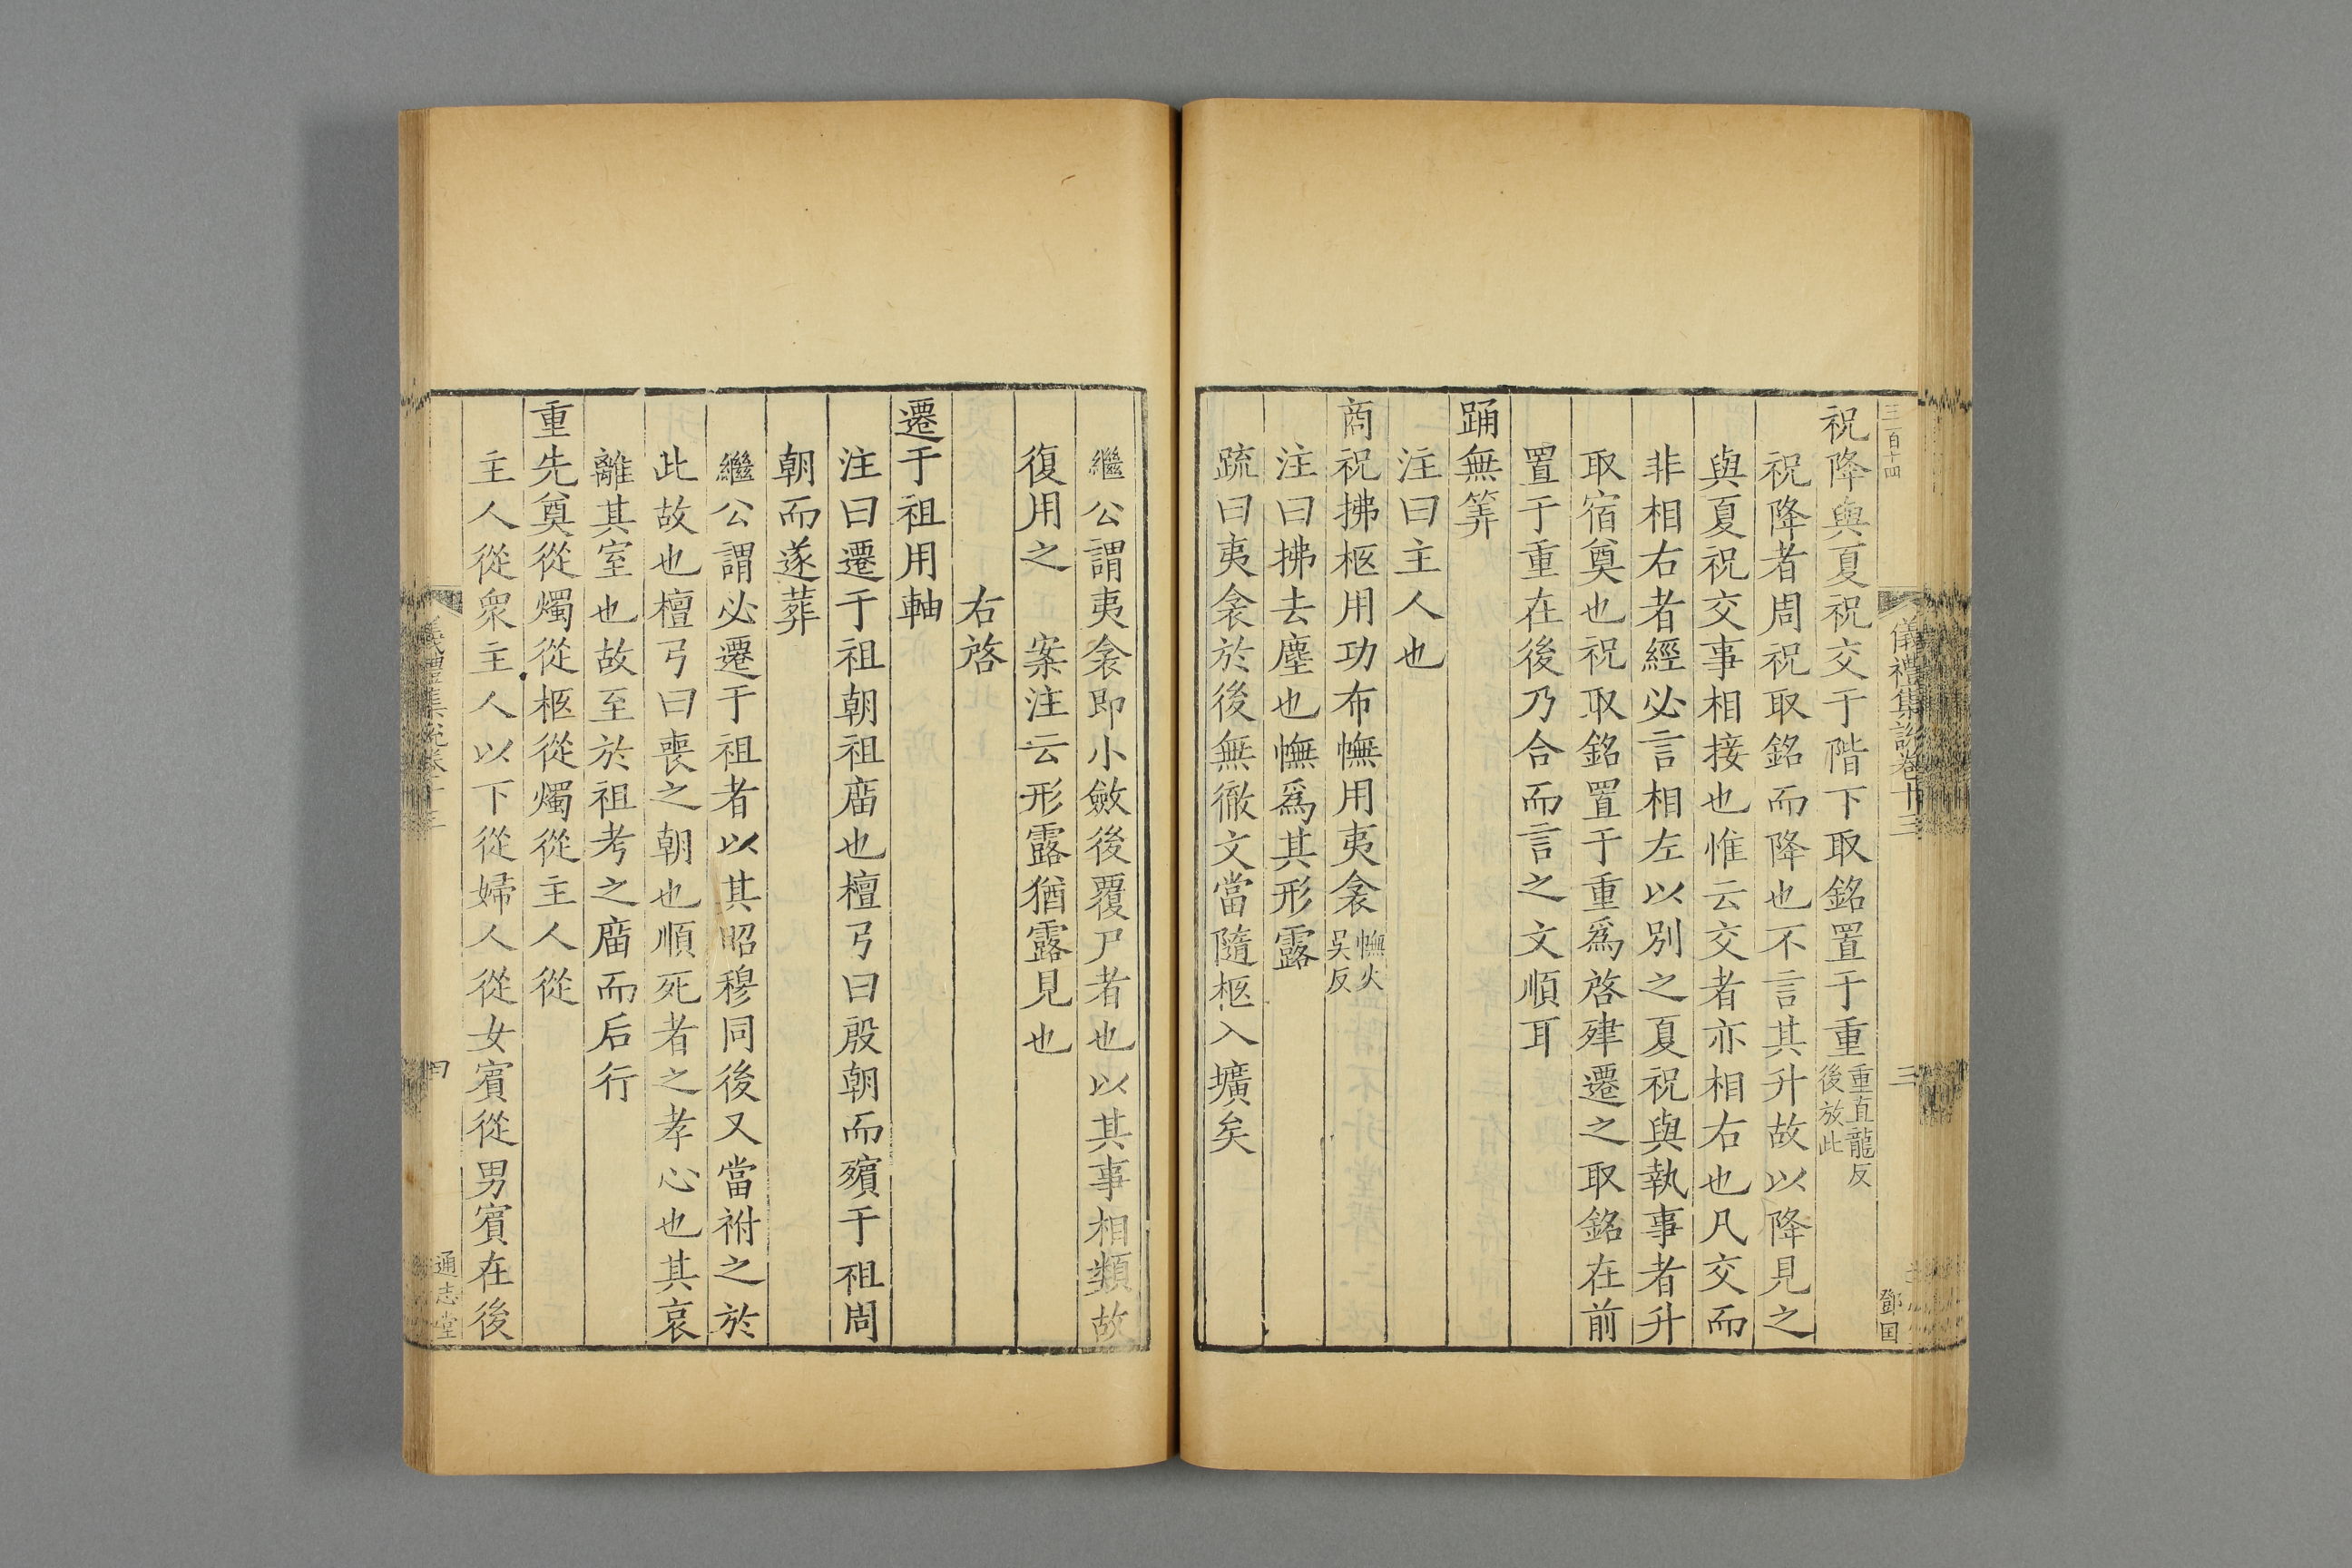 三百十四
儀禮集說卷十三
三
鄧国
祝降與夏祝交于階下取銘置于重重直龍反後放此
祝降者周祝取銘而降也不言其升故以降見之
與夏祝交事相接也惟云交者亦相右也凡交而
非相右者經必言相左以別之夏祝與執事者升
取宿奠也祝取銘置于重爲啓肂遷之取銘在前
置于重在後乃合而言之文順耳
踊無筭
注曰主人也
商祝拂柩用功布幠用夷衾幠火吳反
注曰拂去塵也幠爲其形露
疏曰夷衾於後無徹文當隨柩入壙矣
繼公謂夷衾即小斂後覆尸者也以其事相類故
復用之　案注云形露猶露見也
右啓
遷于祖用軸
注曰遷于祖朝祖廟也檀弓曰殷朝而殯于祖周
朝而遂葬
繼公謂必遷于祖者以其昭穆同後又當祔之於
此故也檀弓曰喪之朝也順死者之孝心也其哀
離其室也故至於祖考之廟而后行
重先奠從燭從柩從燭從主人從
主人從衆主人以下從婦人從女賓從男賓在後
儀禮集說卷十三
四
通志堂